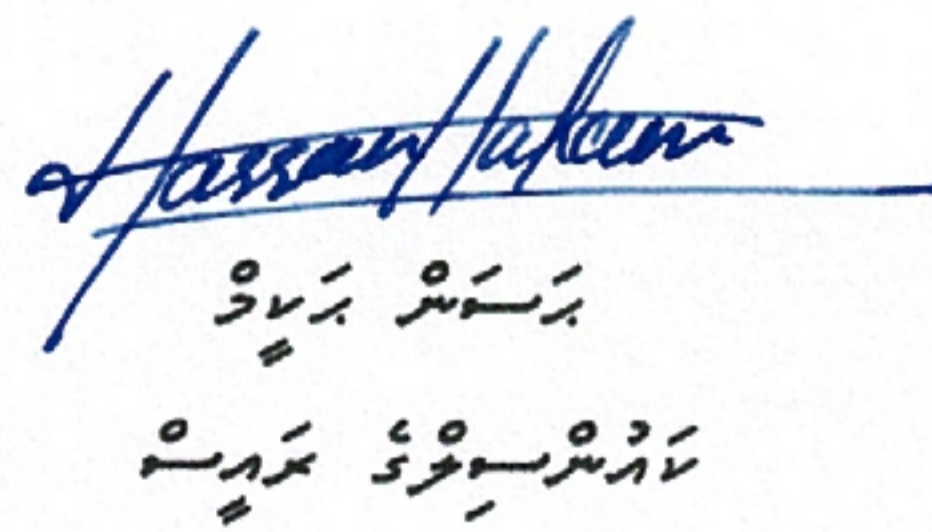 Hassan Hakeem
ޙަސަން ޙަކީމް
ކައުންސިލްގެ ރައީސް